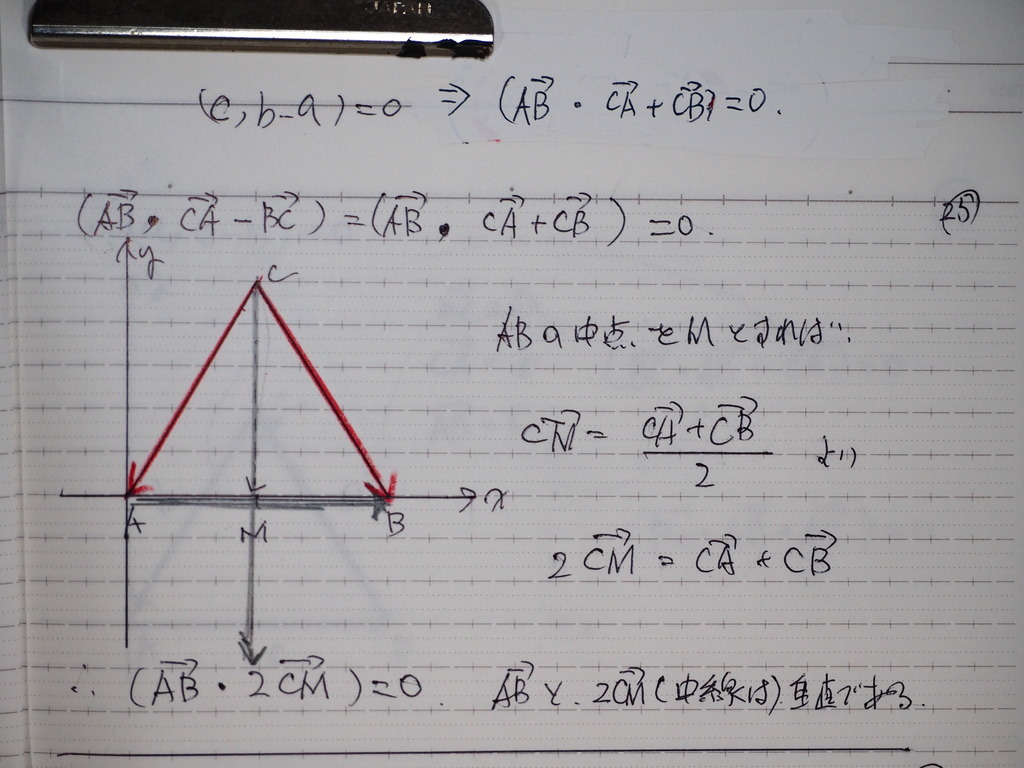 JAPAN
(c, b-a)=0 ⇒ (AB→・CA→+CB→)=0.
(AB→・CA→-BC→)=(AB→・CA→+CB→)=0.
25
y
C
ABの中点をMとすれば、
CM→=(CA→+CB→)/2 より
x
A M B
2CM→=CA→+CB→
∴(AB→・2CM→)=0. AB→と、2CM→(中線は)垂直である.